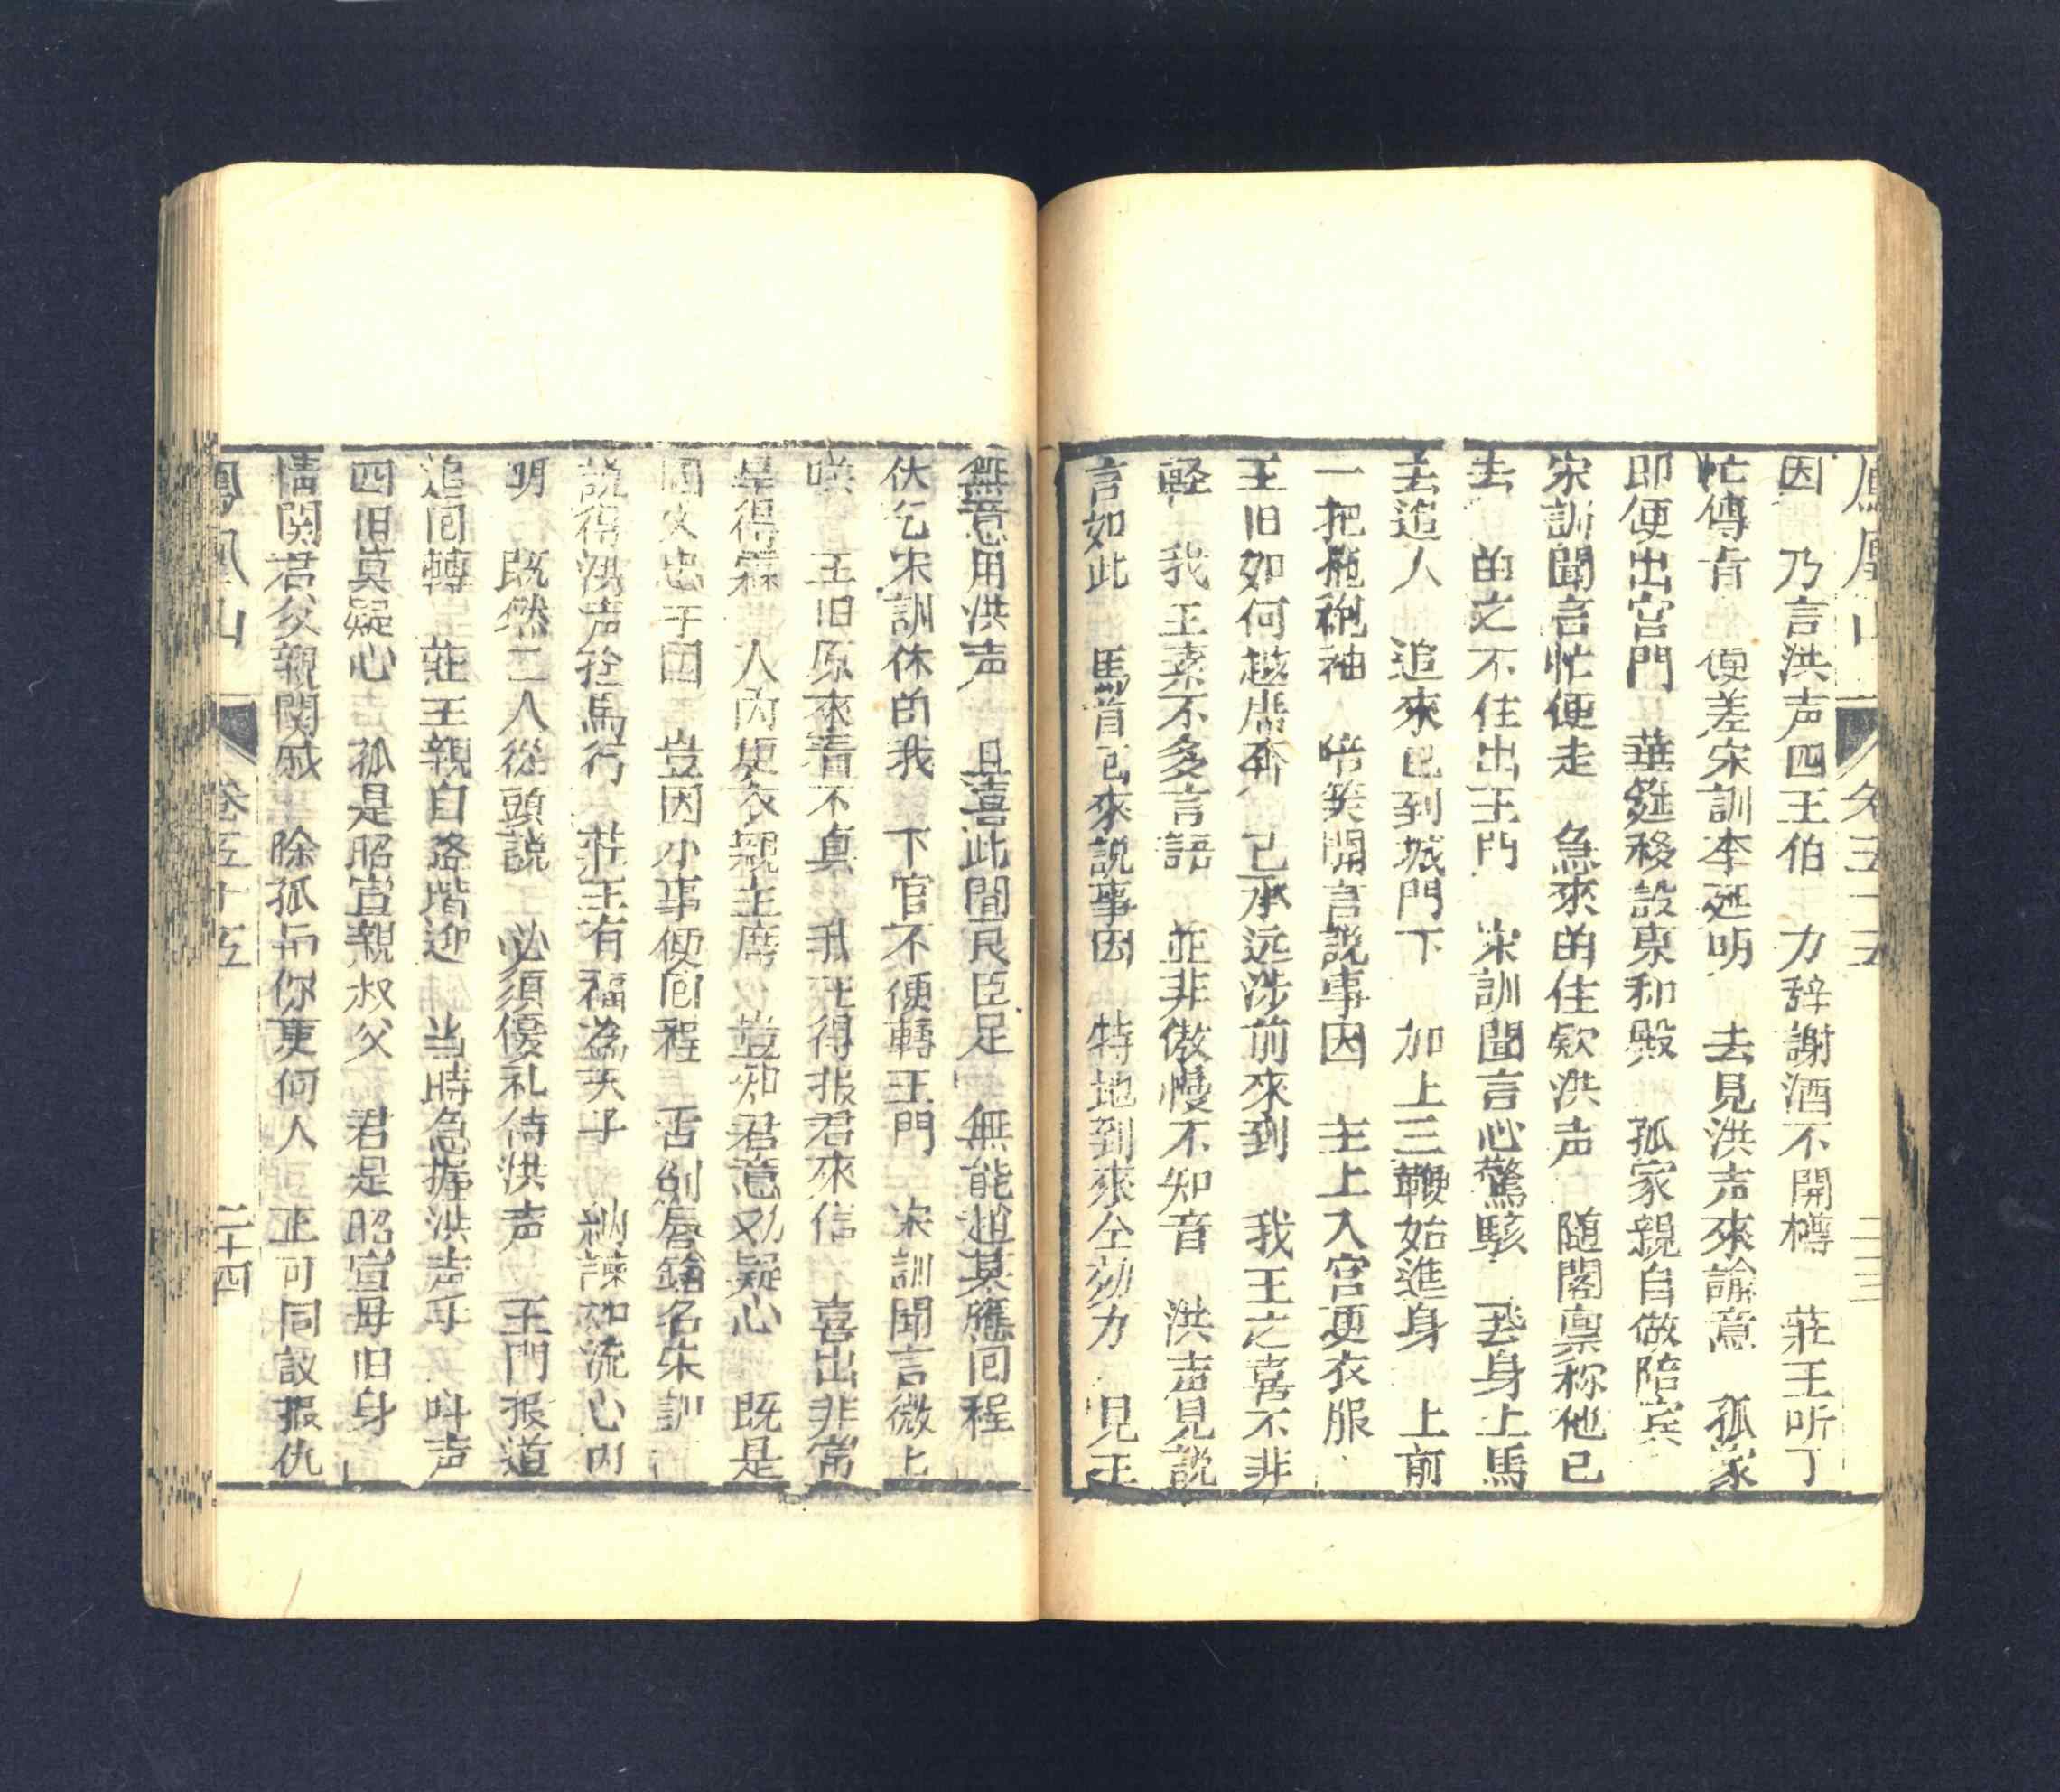 鳳凰山 卷五十五 二三
因 乃言洪声四王伯 力辞謝酒不開樽 莊王听了
忙傳旨 便差宋訓李廷明 去見洪声來諭意 孤家
即便出宮門 華筵移設東和殿 孤家親自做陪宾
宋訓聞言忙便走 急來的住欵洪声 随閣禀称他已
去 的之不住出王門 宋訓聞言心驚駭 飛身上馬
去追人 追來已到城門下 加上三鞭始進身 上前
一把拖袍袖 陪笑開言説事因 主上入宮更衣服
王旧如何越席奔 已承远涉前來到 我王之喜不非
軽 我王素不多言語 並非傲慢不知音 洪声見説
言如此 馬首已來説事因 特地到來仝効力 見王
無意用洪声 且喜此間良臣足 無能趙某應囘程
伏乞宋訓休的我 下官不便轉王門 宋訓聞言微上
咲 王旧原來看不真 我王得报君來信 喜出非常
是得霖 人内更衣親主席 豈知君意又疑心 既是
國丈忠于国 豈因小事便囘程 舌劍唇鎗名宋訓
説得洪声拴馬行 莊王有福為天子 納諫如流心内
明 既然二人從頭説 必須優礼待洪声 王門报道
追囘轉 莊王親自洛堦迎 当時急握洪声手 呌声
四旧莫疑心 孤是昭宣親叔父 君是昭宣母旧身
情関君父親関戚 除孤而你更何人 正可同議报仇
鳳凰山 卷五十五 二十四